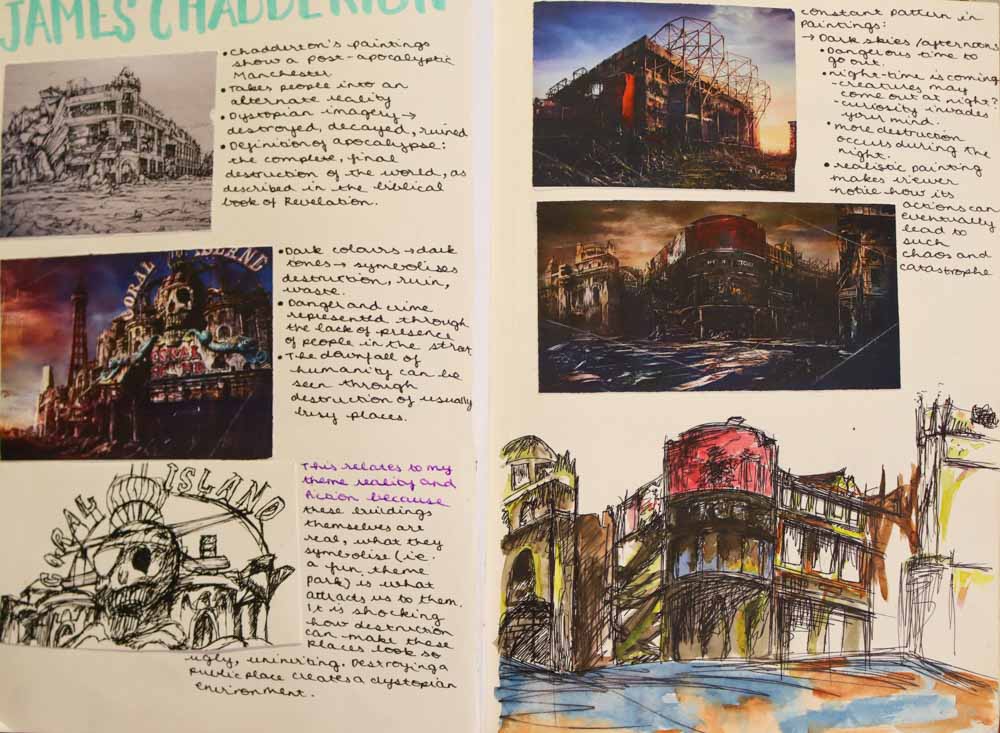 JAMES CHADDERTON
• Chadderton's paintings
show a post-apocalyptic
Manchester
• Takes people into an
alternate reality
• Dystopian imagery →
destroyed, decayed, ruined
• Definition of apocalypse:
the complete, final
destruction of the world, as
described in the biblical
book of Revelation.
CORAL ISLAND
CORAL
ISLAND
• Dark colours → dark
tones → symbolises
destruction, ruin,
waste.
• Danger and crime
represented through
the lack of presence
of people in the street
• The downfall of
humanity can be
seen through
destruction of usually
busy places.
CORAL ISLAND
This relates to my
theme reality and
fiction because
these buildings
themselves are
real, what they
symbolise (i.e.
a fun theme
park) is what
attracts us to them.
It is shocking
how destruction
can make these
places look so
ugly, uninviting. Destroying a
public place creates a dystopian
environment.
constant pattern in
paintings:
→ Dark skies/afternoons
• Dangerous time to
go out.
• night-time is coming
- creatures may
come out at night?
- curiosity invades
your mind.
• more destruction
occurs during the
night.
• realistic painting
makes viewer
notice how its
actions can
eventually
lead to
such
chaos and
catastrophe